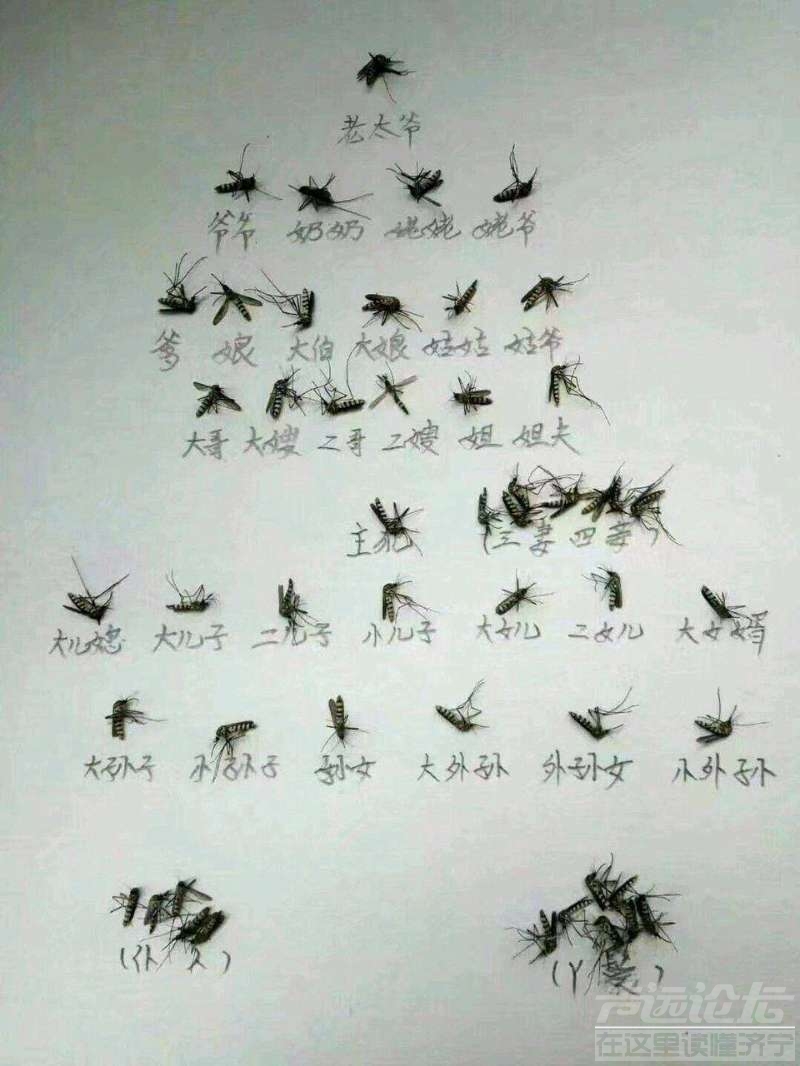 老太爷
爷爷 奶奶 姥姥 姥爷
爹 娘 大伯 大娘 姑姑 姑爷
大哥 大嫂 二哥 二嫂 姐 姐夫
主犯 (三妻四妾)
大儿媳 大儿子 二儿子 小儿子 大女儿 二女儿 大女婿
大孙子 小孙子 孙女 大外孙 外孙女 小外孙
(仆人) (丫鬟)
声远论坛
在这里读懂济宁